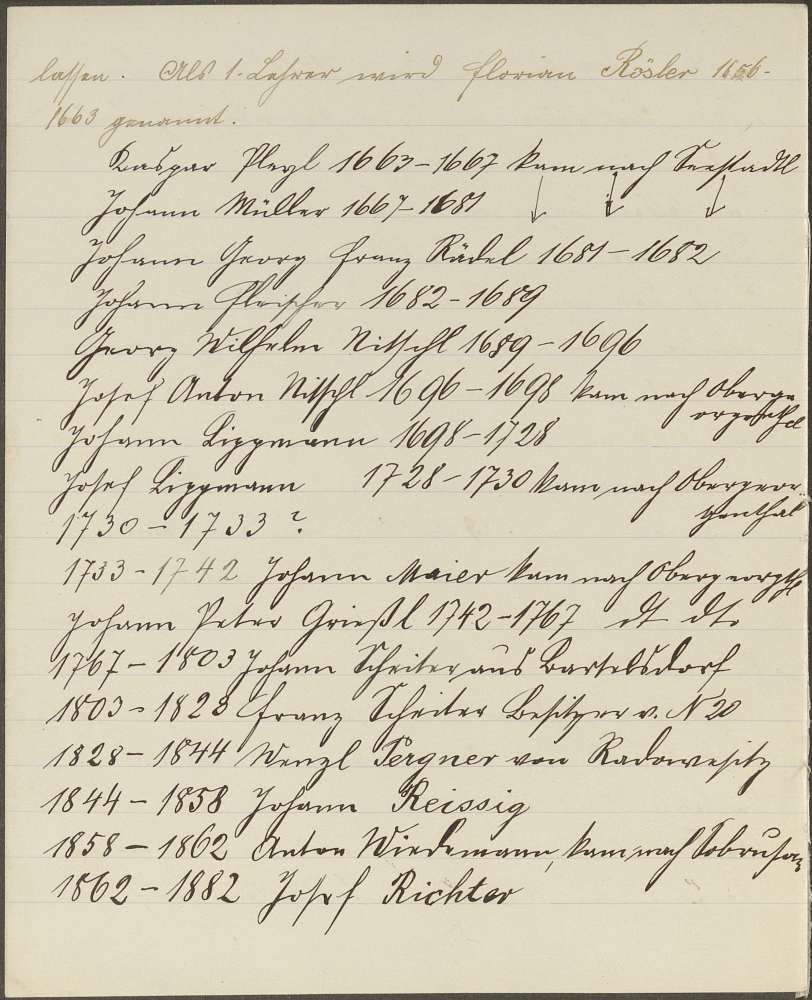 lassen. Als 1. Lehrer wird Florian Rösler 1656-
1663 genannt.
Kaspar Pleyl 1663-1667 kam nach Seestadtl
Johann Müller 1667-1681
Johann Georg Franz Rädel 1681-1682
Johann Fleischer 1682-1689
Georg Wilhelm Nitschl 1689-1696
Josef Anton Nitschl 1696-1698 kam nach Oberge-
orgenthal
Johann Lippmann 1698-1728
Josef Lippmann 1728-1730 kam nach Obergeor-
genthal
1730-1733 ?
1733-1742 Johann Maier kam nach Obergeorgthl
Johann Peter Grießl 1742-1767 dt dto
1767-1803 Johann Scheiter aus Bartelsdorf
1803-1828 Franz Scheiter Besitzer v. N 20
1828-1844 Wenzl Pergner von Radowesitz
1844-1858 Johann Reissig
1858-1862 Anton Wiedemann, kam nach Sobrusan
1862-1882 Josef Richter